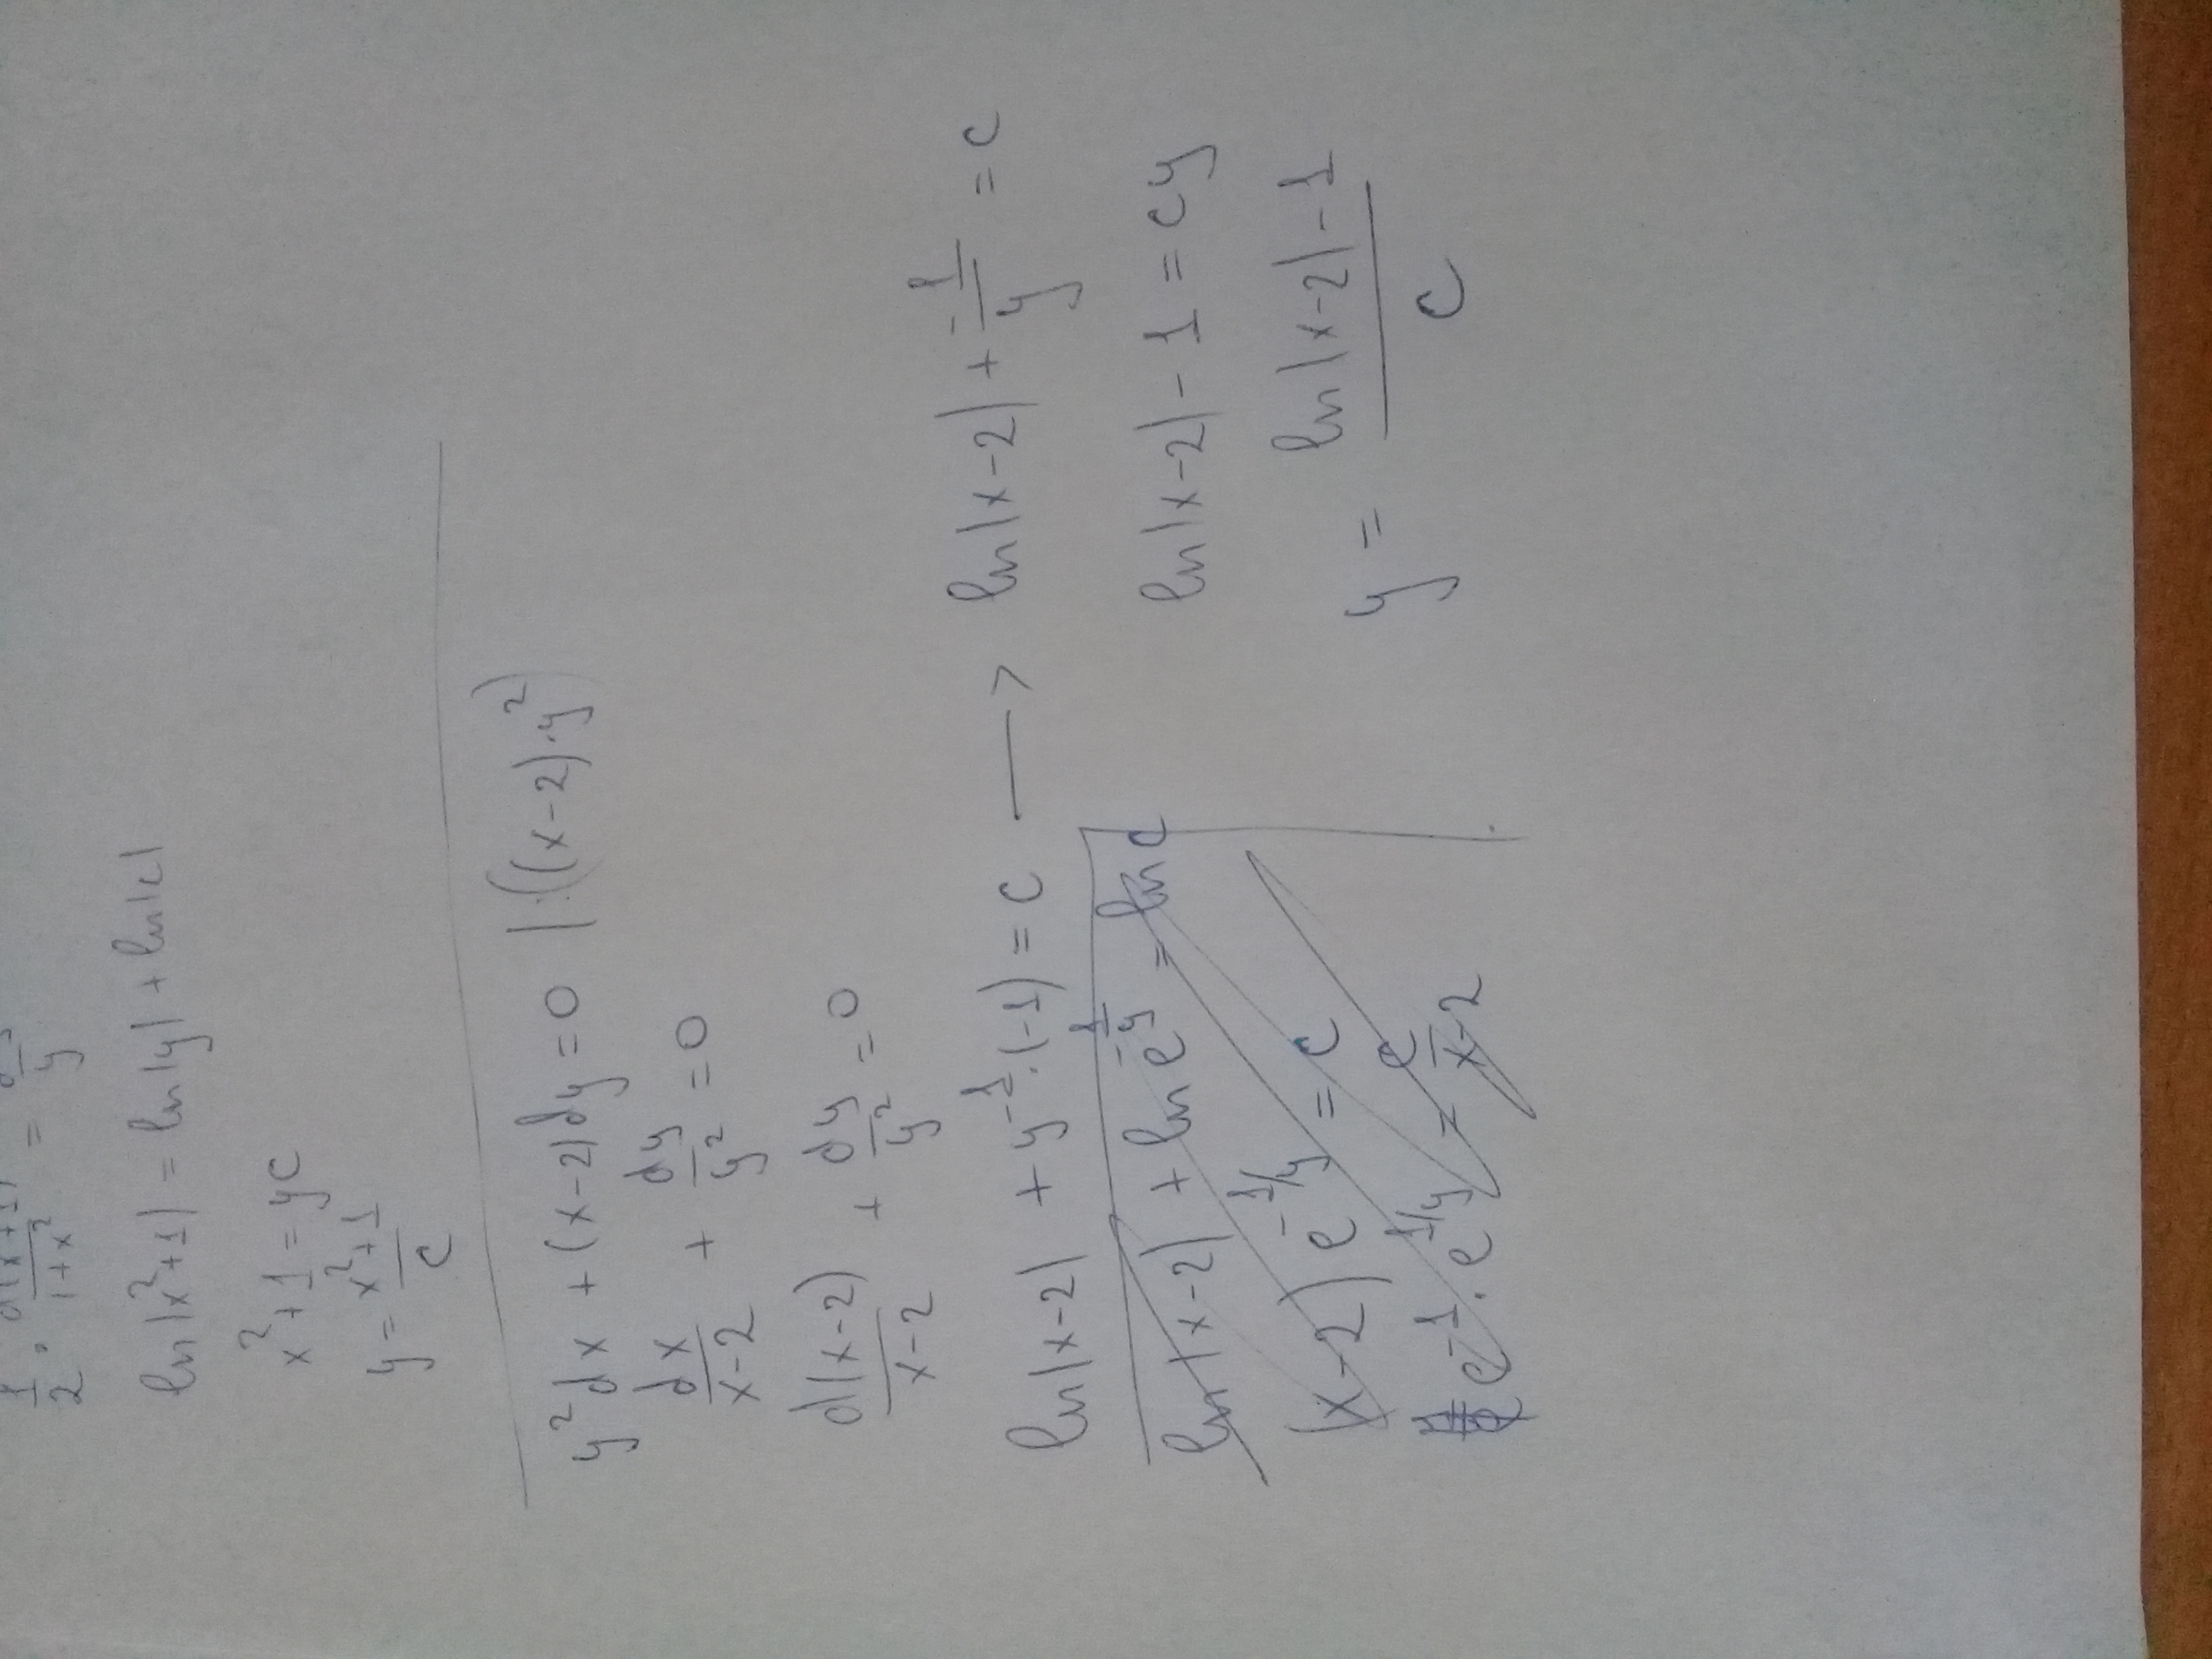 1/2 · d(x²+1)/1+x² = dy/y
ln|x²+1| = ln|y| + ln|c|
x²+1 = yc
y = x²+1/c
y²dx + (x-2)dy = 0 | :((x-2)·y²)
dx/x-2 + dy/y² = 0
d(x-2)/x-2 + dy/y² = 0
ln|x-2| + y⁻¹·(-1) = c ⟶ ln|x-2| + -1/y = c
ln|x-2| + ln e^-1/y = ln c
(x-2) e^-1/y = c
e⁻¹ · e^1/y = c/x-2
ln|x-2| - 1 = cy
y = ln|x-2| - 1/c